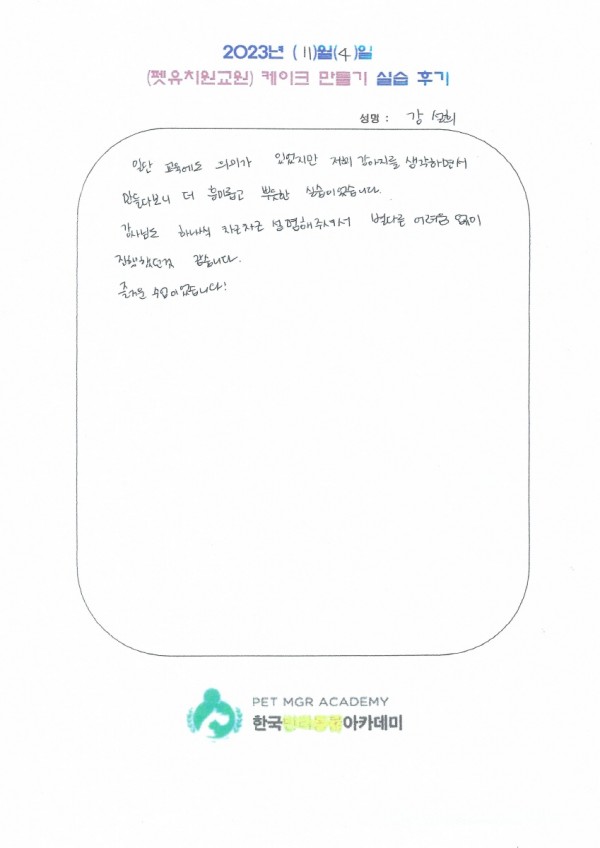 2023년 (11)월(4)일
(펫유치원교원) 케이크 만들기 실습 후기
성명 : 강
일단 교육에도 의의가 있었지만 저희 강아지를 생각하면서
만들다보니 더 흥미롭고 뿌듯한 실습이었습니다.
강사님도 하나씩 차근차근 설명해주셔서 별다른 어려움 없이
진행했던것 같습니다.
즐거운 수업이었습니다!
PET MGR ACADEMY
한국반려동물아카데미